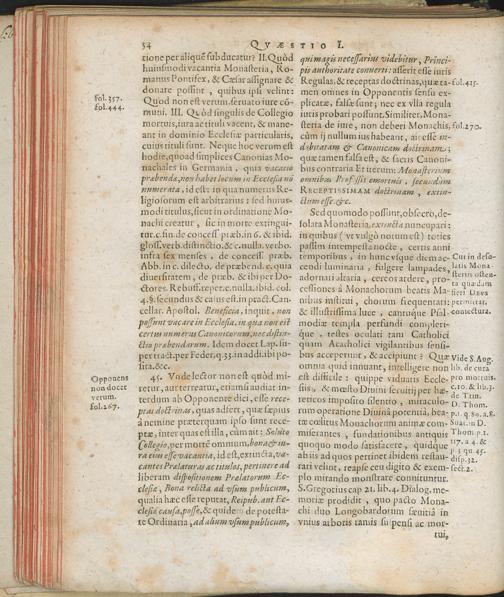 54
QVÆSTIO I.
tione per aliquē subducatur? II. Quòd
huiusmodi vacantia Monasteria, Ro-
manus Pontifex, & Cæsar assignare &
donare possint, quibus ipsi velint:
Quod non est verum. seruato iure cō-
muni. III. Quòd singulis de Collegio
mortuis, iura ac tituli vacent, & mane-
ant in dominio Ecclesiæ particularis,
cuius tituli sunt. Neque hoc verum est
hodie, quoad simplices Canonias Mo-
nachales in Germania, quia vacatio
præbendæ, non habet locum in Ecclesia nō
numerata, id est: in qua numerus Re-
ligiosorum est arbitrarius: sed huius-
modi titulus, sicut in ordinatione Mo-
nachi creatur, sic in morte extingui-
tur. c. fin. de concess. præb. in 6. & ibid.
gloss. verb. distinctio. & c. nulla. verbo.
infra sex menses, de concess. præb.
Abb. in c. dilecto. de præbend. c. quia
diuersitatem, de præb. & ibi per Do-
ctores. Rebuff. reper. c. nulla. ibid. col.
4. §. secundus & caius est. in pract. Can-
cellar. Apostol. Beneficia, inquit, non
possunt vacare in Ecclesia, in qua non est
certus numerus Canonicorum, nec distin-
ctio præbendarum. Idem docet Lap. su-
per tract. per Feder. q. 33. in addi. ibi po-
sita. &c.
45. Vnde lector non est quòd mi-
retur, aut terreatur, etiamsi audiat in-
terdum ab Opponente dici, esse rece-
ptas doctrinas, quas adfert, quæ sæpius
à nemine præterquam ipso sunt rece-
ptæ, inter quas est illa, cum ait: Soluto
Collegio, per mortē omnium, bona & iu-
ra eius esse vacantia, id est, extincta, va-
cantes Prælaturas ac titulos, pertinere ad
liberam dispositionem Prælatorum Ec-
clesiæ, Bona relicta ad vsum publicum,
qualia hæc esse reputat, Reipub. aut Ec-
clesiæ causa, posse, & quidem de potesta-
te Ordinaria, ad alium vsum publicum,
fol. 357.
fol. 444.
Opponens
non docet
verum.
fol. 267.
qui magis necessarius videbitur, Princi-
pis authoritate conuerti: asserit esse iuris
Regulas, & receptas doctrinas, quæ ta-
men omnes in Opponentis sensu ex-
plicatæ, falsæ sunt; nec ex vlla regula
iuris probari possunt. Similiter, Mona-
steria de iure, non deberi Monachis,
cùm ij nullum ius habeant, ait esse in-
dubitatam & Canonicam doctrinam;
quæ tamen falsa est, & sacris Canoni-
bus contraria Et iterum: Monasterium
omnibus Professis emortuis, secundùm
RECEPTISSIMAM doctrinam, extin-
ctum esse. &c.
Sed quomodo possunt, obsecro, de-
solata Monasteria, extincta nuncupari:
in quibus (vt vulgò notum est) toties
passim intempesta nocte, certis anni
temporibus, in hunc vsque diem ac-
cendi luminaria, fulgere lampades,
adornari altaria, cereos ardere, pro-
cessiones à Monachorum beatis Ma-
nibus institui, chorum frequentari:
& illustrissima luce, cantuque Psal-
modiæ templa perfundi complerī-
que, testes oculati tam Catholici
quam Acatholici vigilantibus sensi-
bus acceperunt, & accipiunt? Quæ
omnia quid innuant, intelligere non
est difficile: quippe viduatis Eccle-
sijs, & mœsto Diuini seruitij per hæ-
reticos imposito silentio, miraculo-
rum operatione Diuinâ potentiâ, bea-
tæ cœlitus Monachorum animæ com-
miserantes, fundationibus antiquis
quoquo modo satisfacere, quidque
ab iis ad quos pertinet ibidem restau-
rari velint, reapse ceu digito & exem-
plo mirando monstrare conniturtur.
S. Gregorius cap 21. lib. 4. Dialog. me-
moriæ prodidit, quo pacto Mona-
chi duo Longobardorum sæuitiâ in
vnius arboris ramis suspensi ac mor-
tui,
fol. 415.
fol. 270.
Cur in deso-
latis Mona-
sterijs osten-
ta quædam
fieri DEVS
permittat.
coniectura.
Vide S. Aug.
lib. de cura
pro mortuis.
c. 10. & lib. 3.
de Trin.
D. Thom.
p. 1. q. 89. a. 8.
Suar. in D.
Thom p. 1.
117. a. 4. &
p. 3 qu. 45.
disp. 32.
sect. 2.